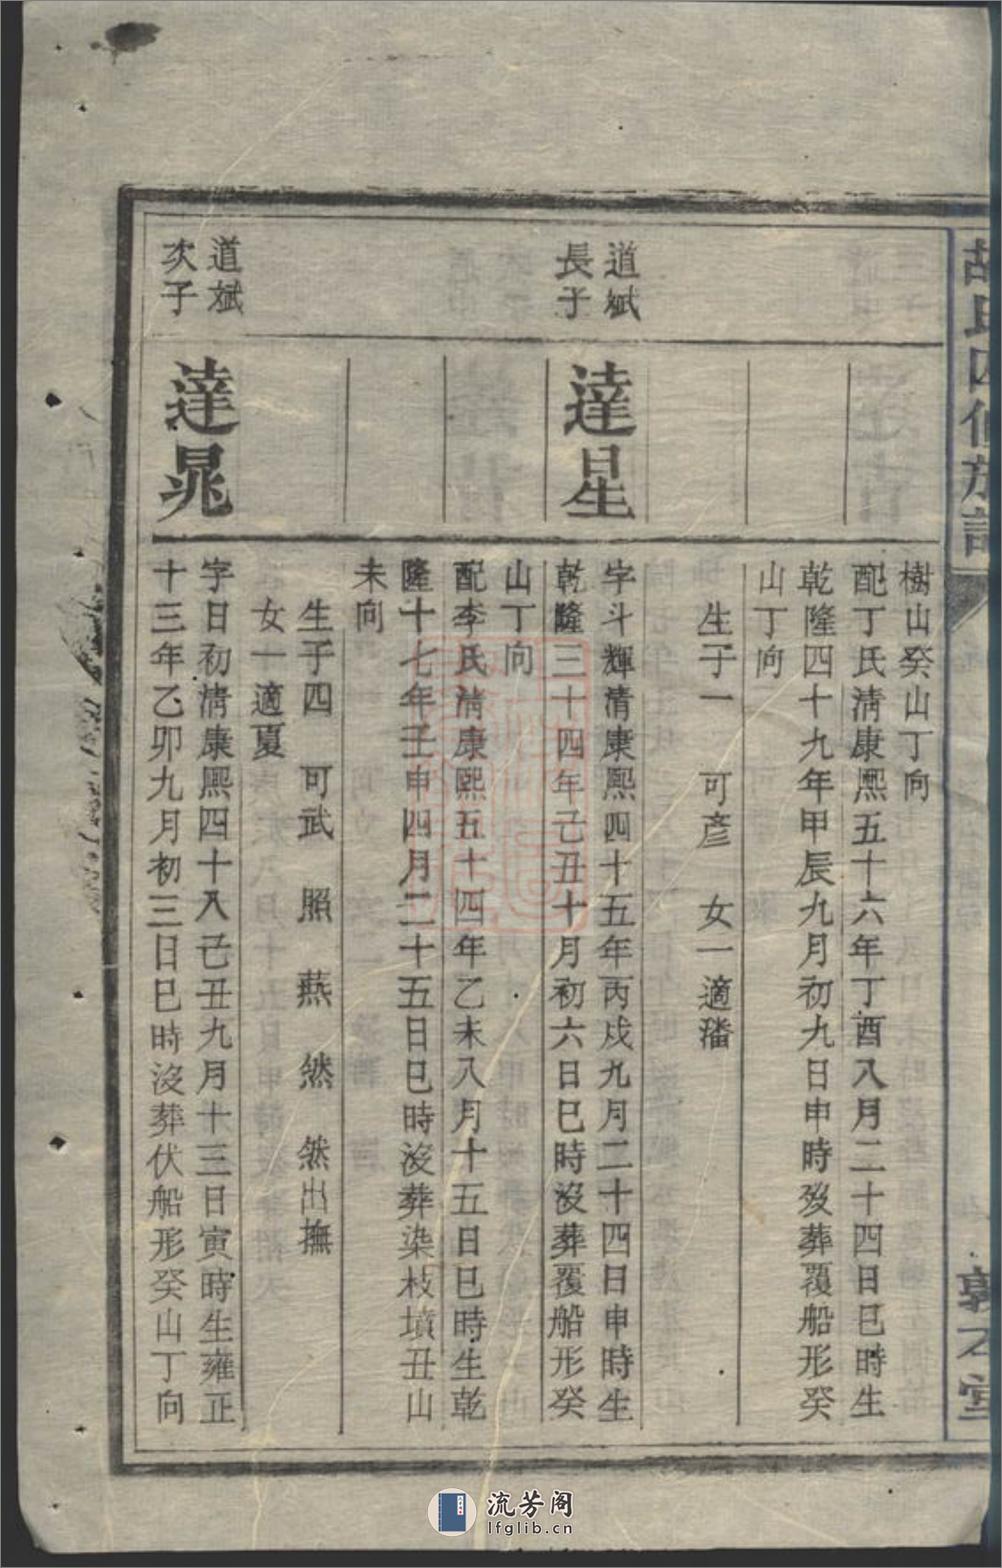 胡氏四修族譜
樹山癸山丁向
配丁氏清康熙五十六年丁酉八月二十四日巳時生
乾隆四十九年甲辰九月初九日申時歿葬覆船形癸
山丁向
生子一 可彥 女一適潘
道斌
長子
達星
字斗輝清康熙四十五年丙戌九月二十四日申時生
乾隆三十四年己丑十月初六日巳時沒葬覆船形癸
山丁向
配李氏清康熙五十四年乙未八月十五日巳時生乾
隆十七年壬申四月二十五日巳時沒葬染枝墳丑山
未向
生子四 可武 照 燕 然 然出撫
女一適夏
道斌
次子
達晁
字日初清康熙四十八己丑九月十三日寅時生雍正
十三年乙卯九月初三日巳時沒葬伏船形癸山丁向
流芳阁
lfglib.cn